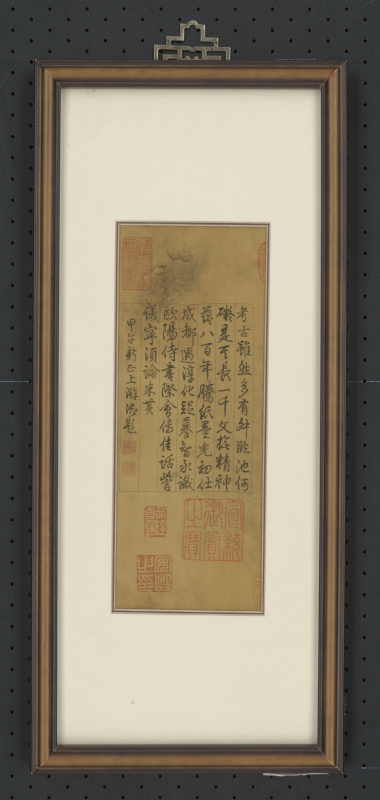 考古雖然多有舛臨池何
礙是其長一千文精神
八百年騰紙墨光初仕
成都遇淳化摹智永識
歐陽侍書際會傳佳話訾
議寧須論米黃
甲午新正上澣御題